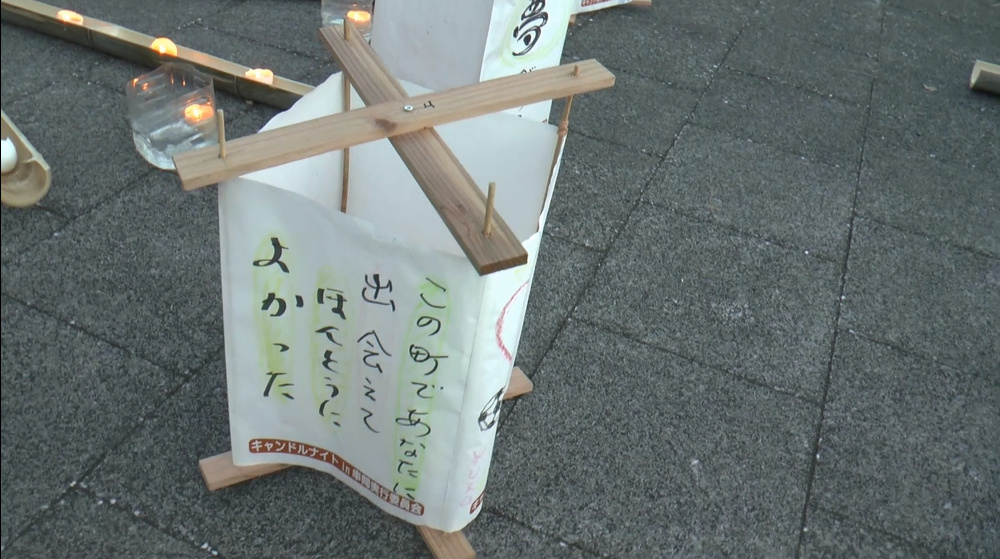 この町であなたに
出会えて
ほんとうに
よかった
キャンドルナイト in 串間実行委員会
夢